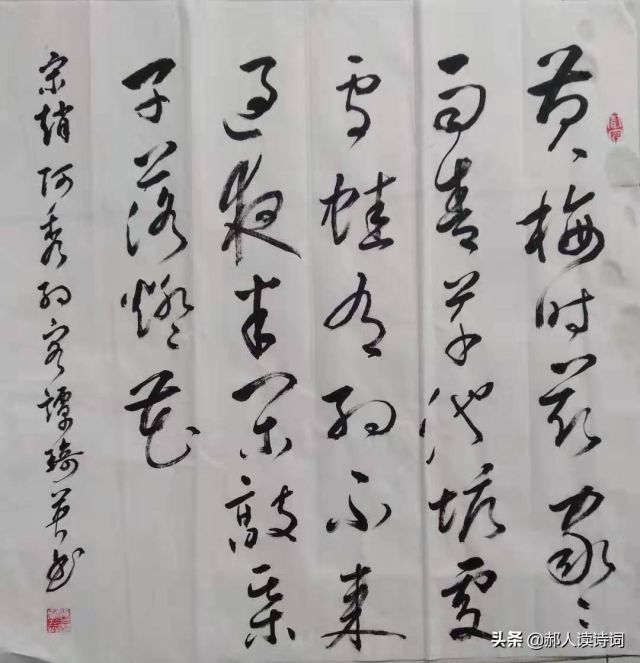 黄梅时节家々
雨青草池塘處
处蛙有约不来
过夜半闲敲棋
子落燈花
宋趙师秀约客譚绮英书
头条 @郝人读诗词